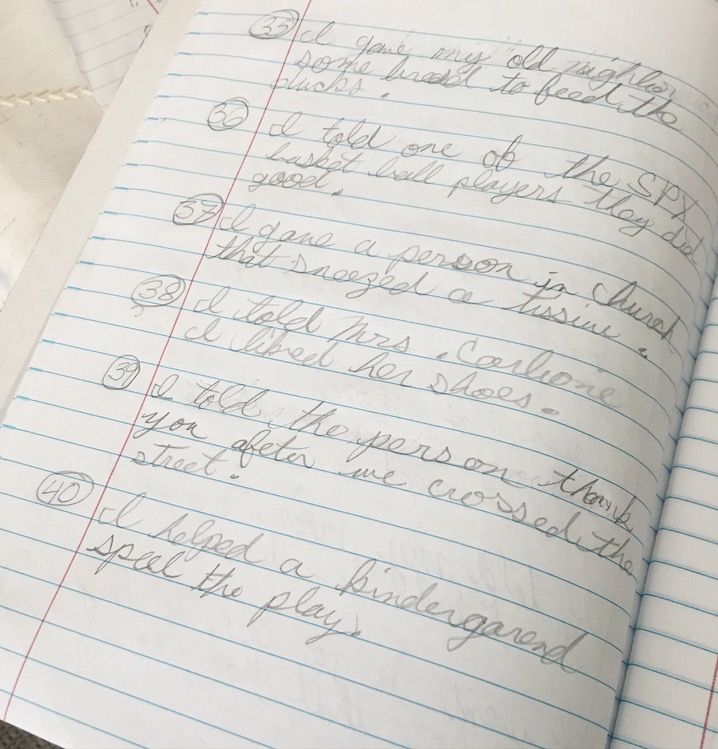 35 I gave my old nighbor
some bread to feed the
ducks.
36 I told one of the SPX
basket ball players they did
good.
37 I gave a person in church
that sneezed a tissiue.
38 I told Mrs. Carlione
I liked her shoes.
39 I told the person thank
you afeter we crossed the
street.
40 I helped a kindergarend
speel the play.